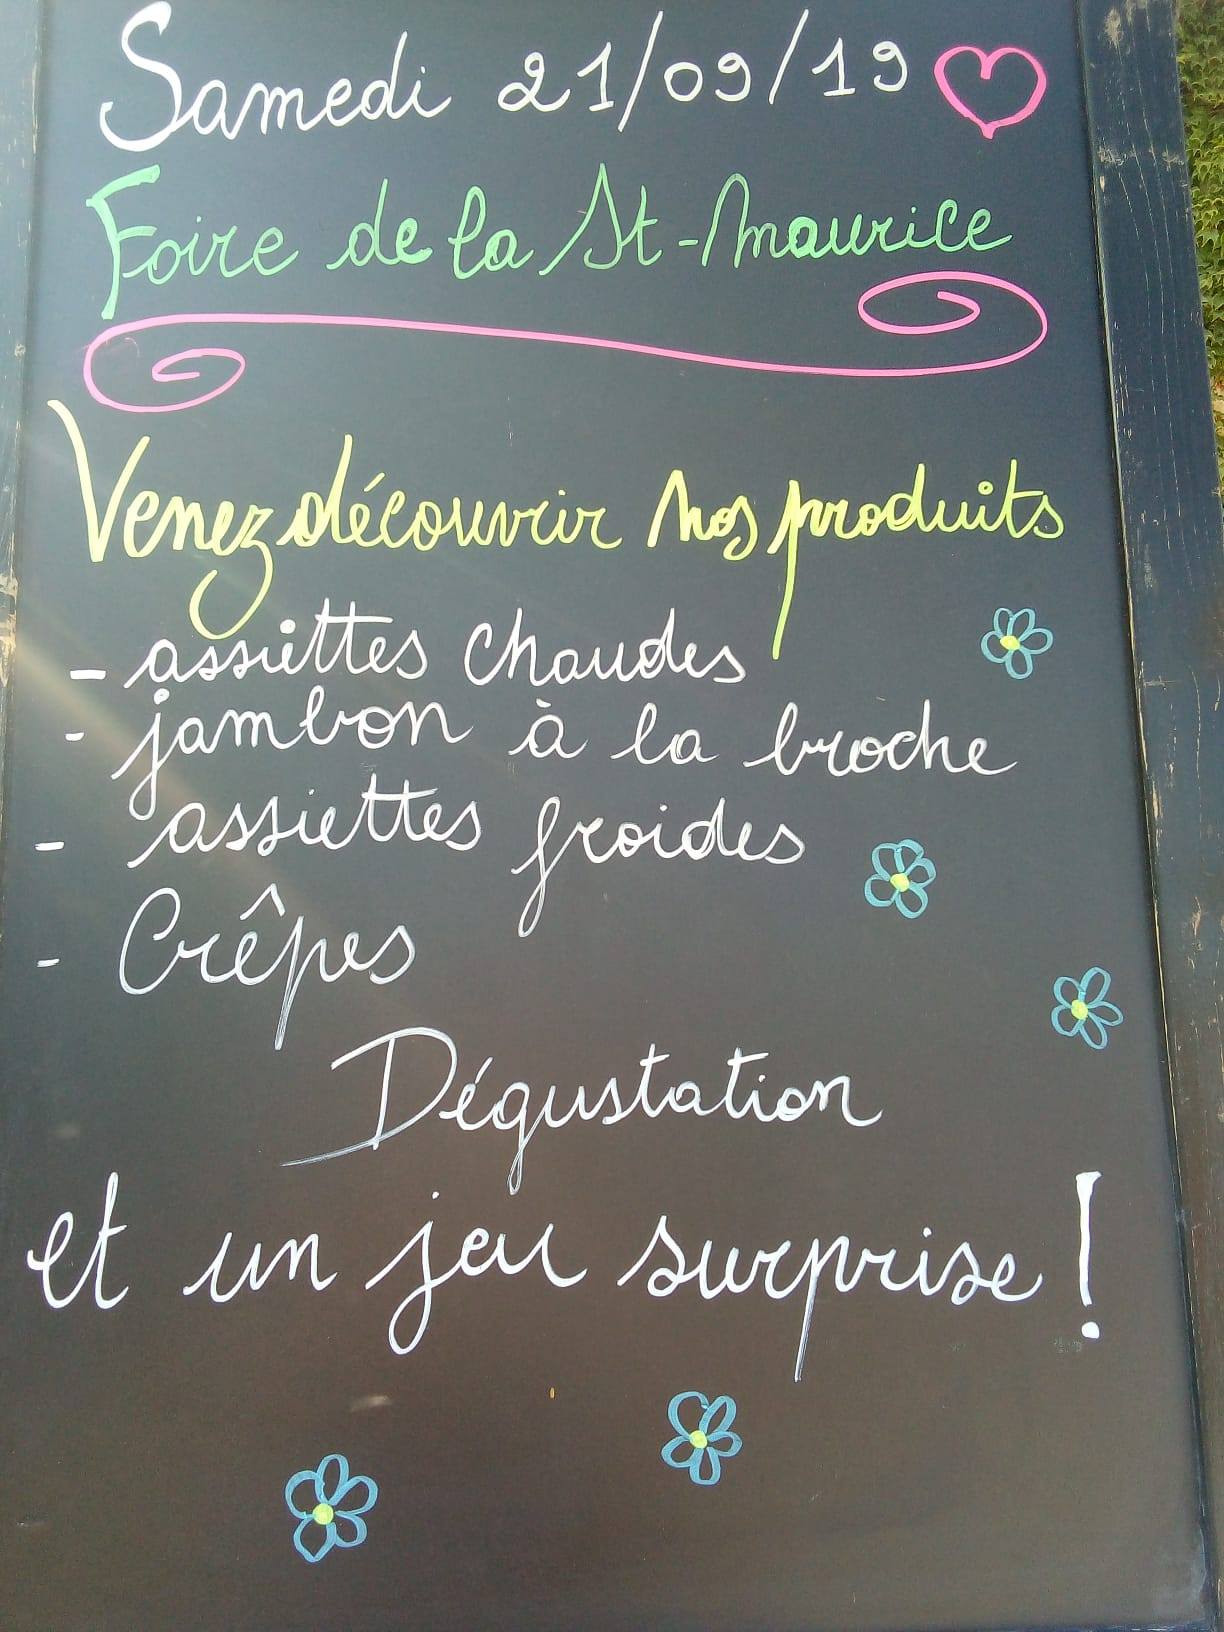 Samedi 21/09/19
Foire de la St-Maurice
Venez découvrir nos produits
- assiettes chaudes
- jambon à la broche
- assiettes froides
- Crêpes
Dégustation
et un jeu surprise !